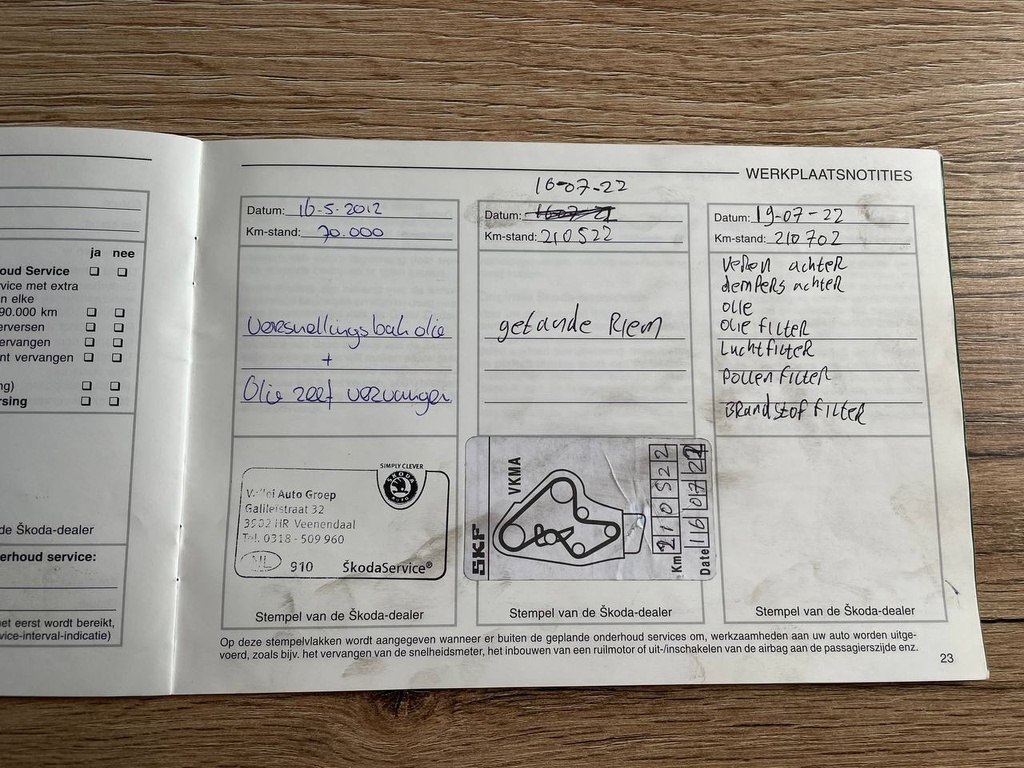 ja nee
oud Service
vice met extra
n elke
90.000 km
erversen
ervangen
nt vervangen
ng)
rsing
de Škoda-dealer
erhoud service:
et eerst wordt bereikt,
vice-interval-indicatie)
WERKPLAATSNOTITIES
Datum: 16-5-2012
Km-stand: 70.000
Versnellingsbak olie
+
Olie zeef vervangen
SIMPLY CLEVER
ŠKODA
AUTO
Vallei Auto Groep
Galileistraat 32
3902 HR Veenendaal
Tel. 0318 - 509 960
NL 910 ŠkodaService®
Stempel van de Škoda-dealer
16-07-22
Datum: 16-07-21
Km-stand: 210522
getande Riem
SKF
VKMA
Km 210522
Date 160722
Stempel van de Škoda-dealer
Datum: 19-07-22
Km-stand: 210702
Veren achter
dempers achter
olie
olie filter
Luchtfilter
Pollen filter
Brandstof filter
Stempel van de Škoda-dealer
Op deze stempelvlakken wordt aangegeven wanneer er buiten de geplande onderhoud services om, werkzaamheden aan uw auto worden uitge-
voerd, zoals bijv. het vervangen van de snelheidsmeter, het inbouwen van een ruilmotor of uit-/inschakelen van de airbag aan de passagierszijde enz.
23